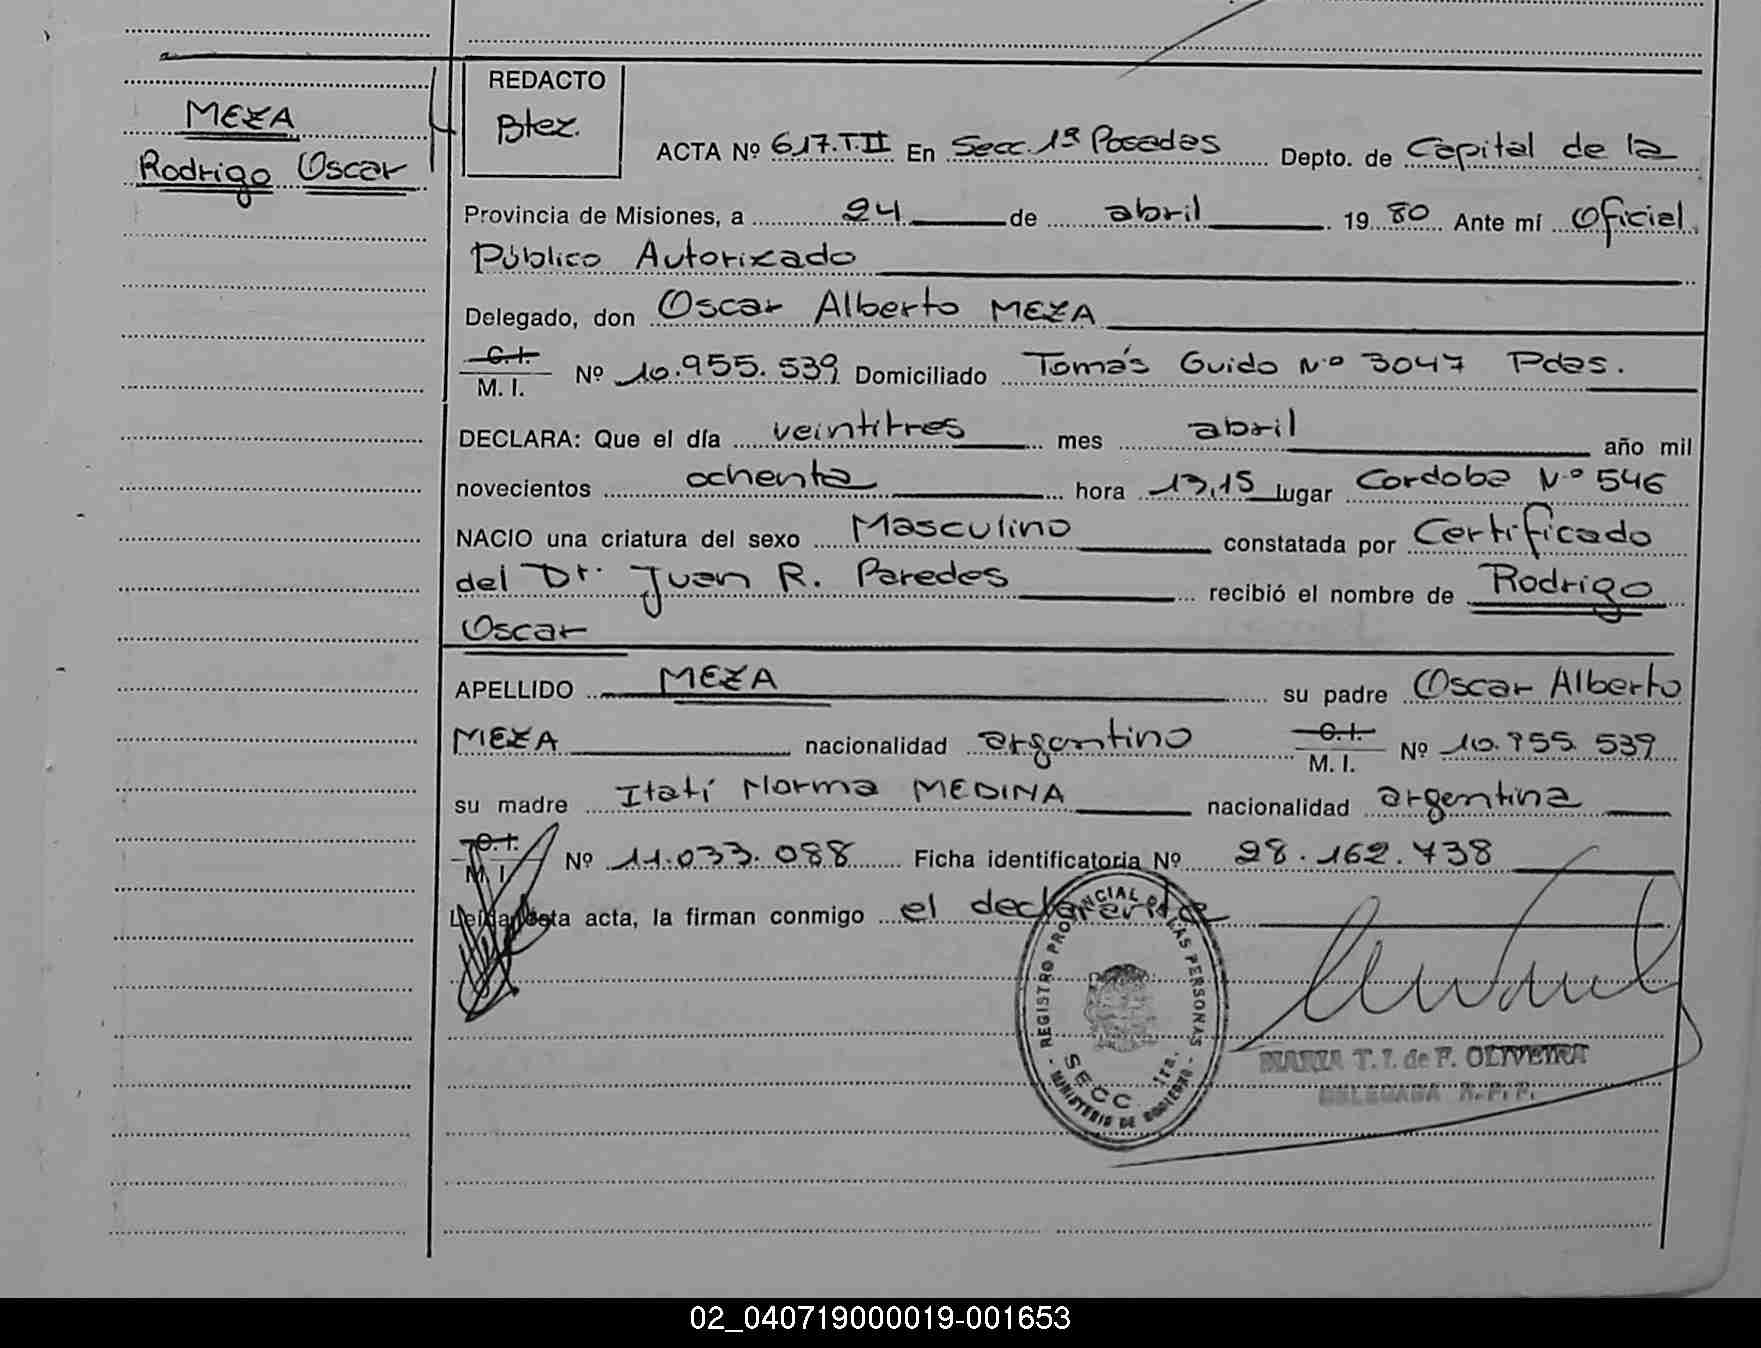 MEZA
Rodrigo Oscar
REDACTO
Btez.
ACTA Nº 617.T.II En Secc. 1ª Posadas Depto. de Capital de la
Provincia de Misiones, a 24 de abril 1980 Ante mí Oficial
Público Autorizado
Delegado, don Oscar Alberto MEZA
C.I.
M. I. Nº 10.955.539 Domiciliado Tomás Guido Nº 3047 Pdas.
DECLARA: Que el día veintitres mes abril año mil
novecientos ochenta hora 13,15 lugar Cordoba Nº 546
NACIO una criatura del sexo Masculino constatada por Certificado
del Dr. Juan R. Paredes recibió el nombre de Rodrigo
Oscar
APELLIDO MEZA su padre Oscar Alberto
MEZA nacionalidad argentino C.I.
M. I. Nº 10.955.539
su madre Itatí Norma MEDINA nacionalidad argentina
C.I.
M. I. Nº 11.033.088 Ficha identificatoria Nº 28.162.738
Leída esta acta, la firman conmigo el declarante
REGISTRO PROVINCIAL DE LAS PERSONAS
SECC. 1ra.
MINISTERIO DE GOBIERNO
MARIA T. I. de F. OLIVEIRA
DELEGADA R.P.P.
02_040719000019-001653